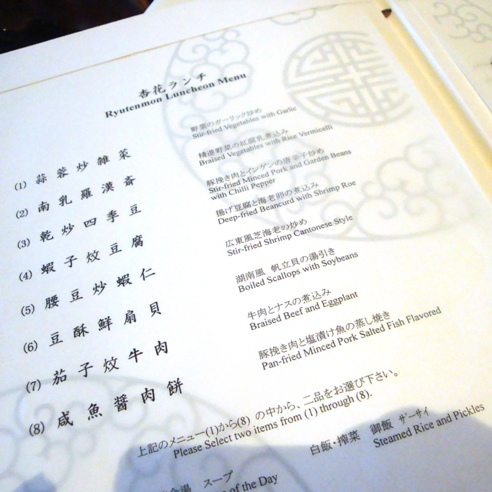 杏花ランチ
Ryutenmon Luncheon Menu
(1) 蒜蓉炒雑菜
野菜のガーリック炒め
Stir-fried Vegetables with Garlic
(2) 南乳羅漢斎
精進野菜の紅腐乳煮込み
Braised Vegetables with Rice Vermicelli
(3) 乾炒四季豆
豚挽き肉とインゲンの唐辛子炒め
Stir-fried Minced Pork and Garden Beans
with Chilli Pepper
(4) 蝦子炆豆腐
揚げ豆腐と海老卵の煮込み
Deep-fried Beancurd with Shrimp Roe
(5) 腰豆炒蝦仁
広東風芝海老の炒め
Stir-fried Shrimp Cantonese Style
(6) 豆酥鮮扇貝
湖南風 帆立貝の湯引き
Boiled Scallops with Soybeans
(7) 茄子炆牛肉
牛肉とナスの煮込み
Braised Beef and Eggplant
(8) 咸魚醤肉餅
豚挽き肉と塩漬け魚の蒸し焼き
Pan-fried Minced Pork Salted Fish Flavored
上記のメニュー(1)から(8) の中から、二品をお選び下さい。
Please Select two items from (1) through (8).
白飯・搾菜 御飯 ザーサイ
Steamed Rice and Pickles
湯 スープ
of the Day